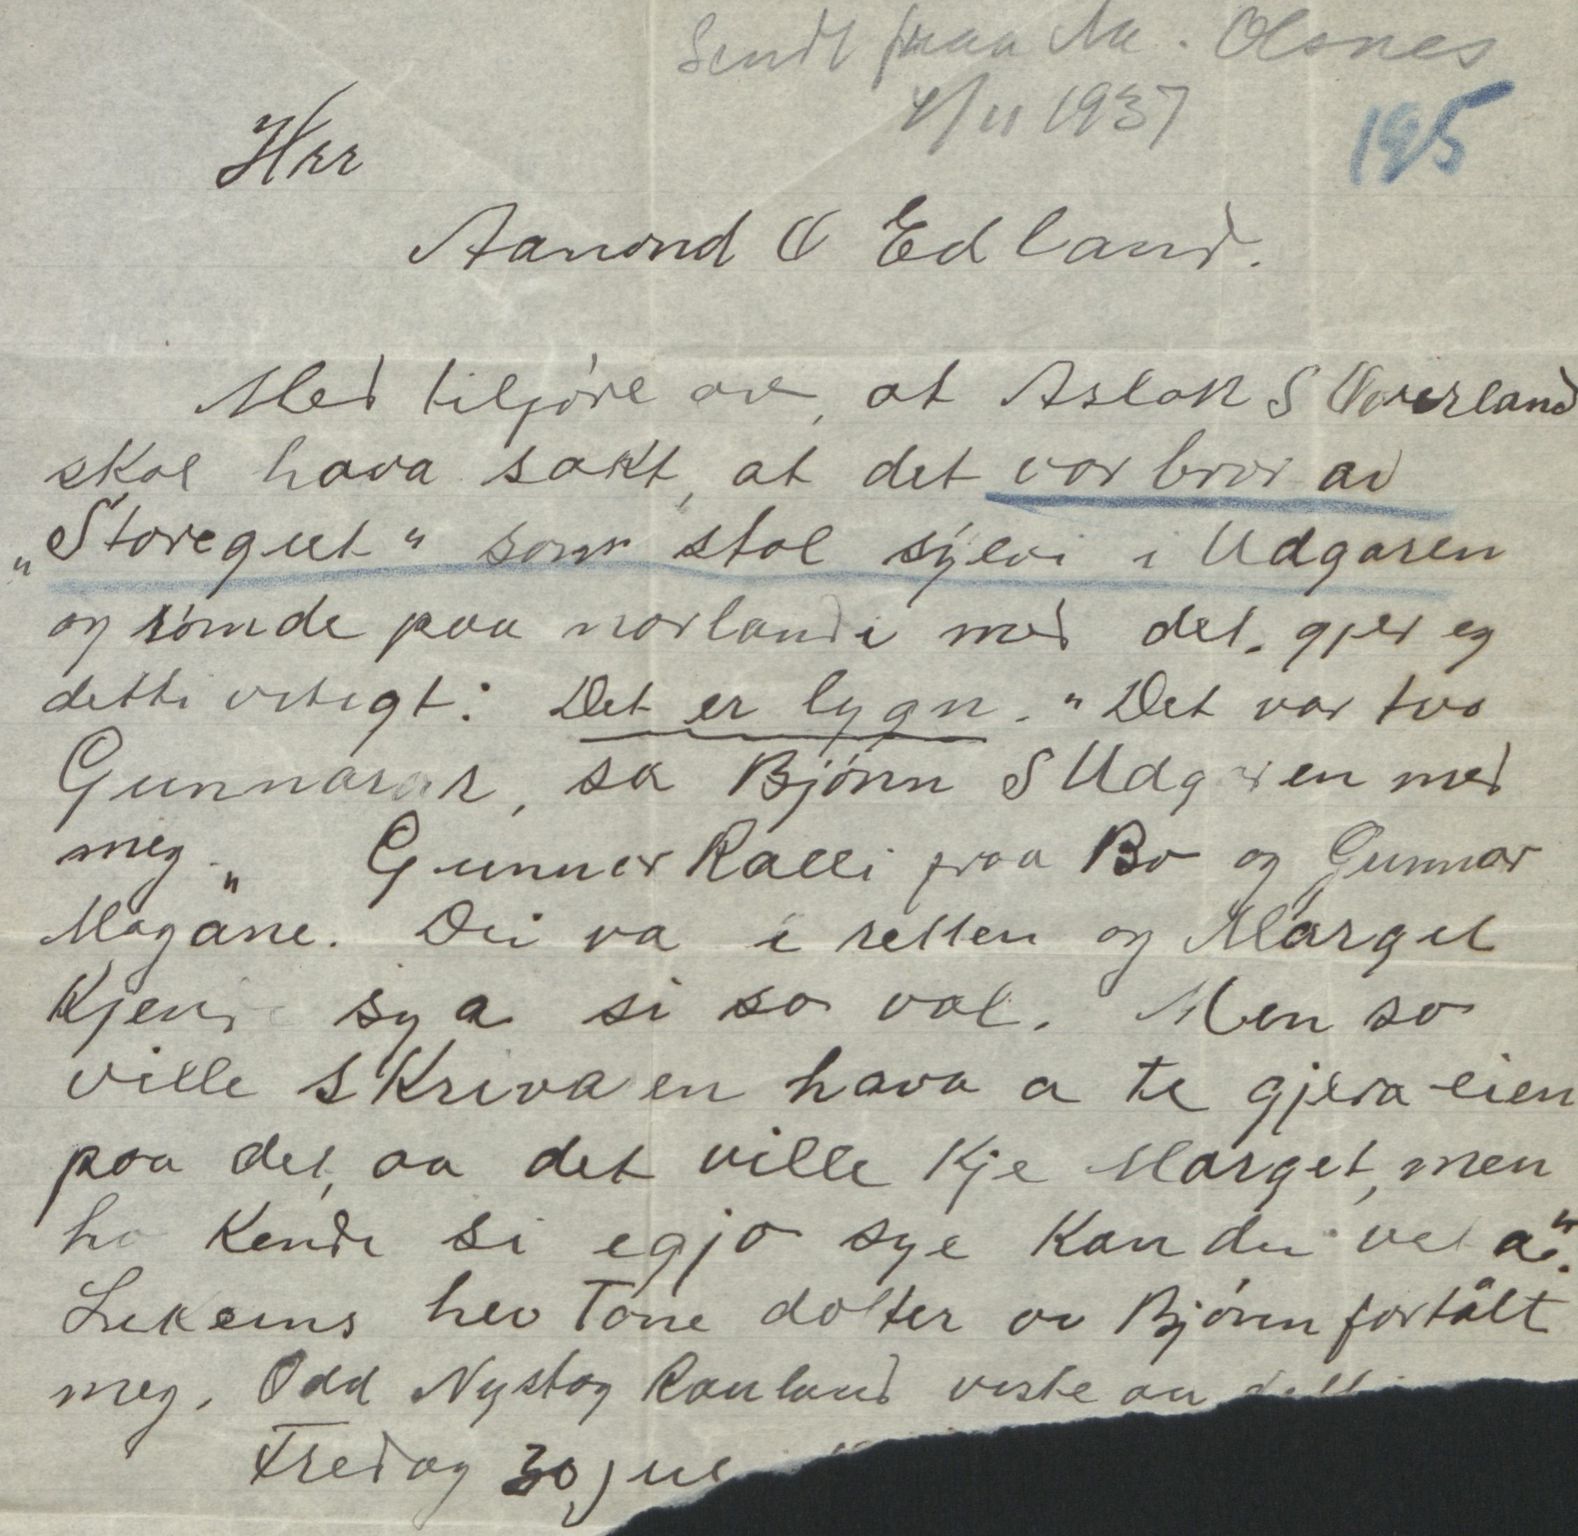 Sendt fraa Aa. Olsnes
4/11 1937
195
Hrr
Aanond O Edland.
Med tilføre av, at Aslak S Översland
skal hava sakt, at det var bror av
„Ooregut" som stal sylvi i Udgaren
og römde paa norlandi med det. gjer eg
detti vitugt: Det er lygn. "Det var tvo
Gunnarar, sa Bjönn S Udgaren med
meg." Gunnar Kalli fraa Bo og Gunnar
Magåne. Dei va i retten og Marget
Kjende sya si so val. Men so
ville skrivaren hava a te gjera eien
paa det, aa det ville kje Marget, men
ho Kende si egjo sye Kan du veta".
Lukeins hev Tone dotter av Bjönn fortålt
meg. Odd Nystog Rauland viste au
Fredag 30 jul